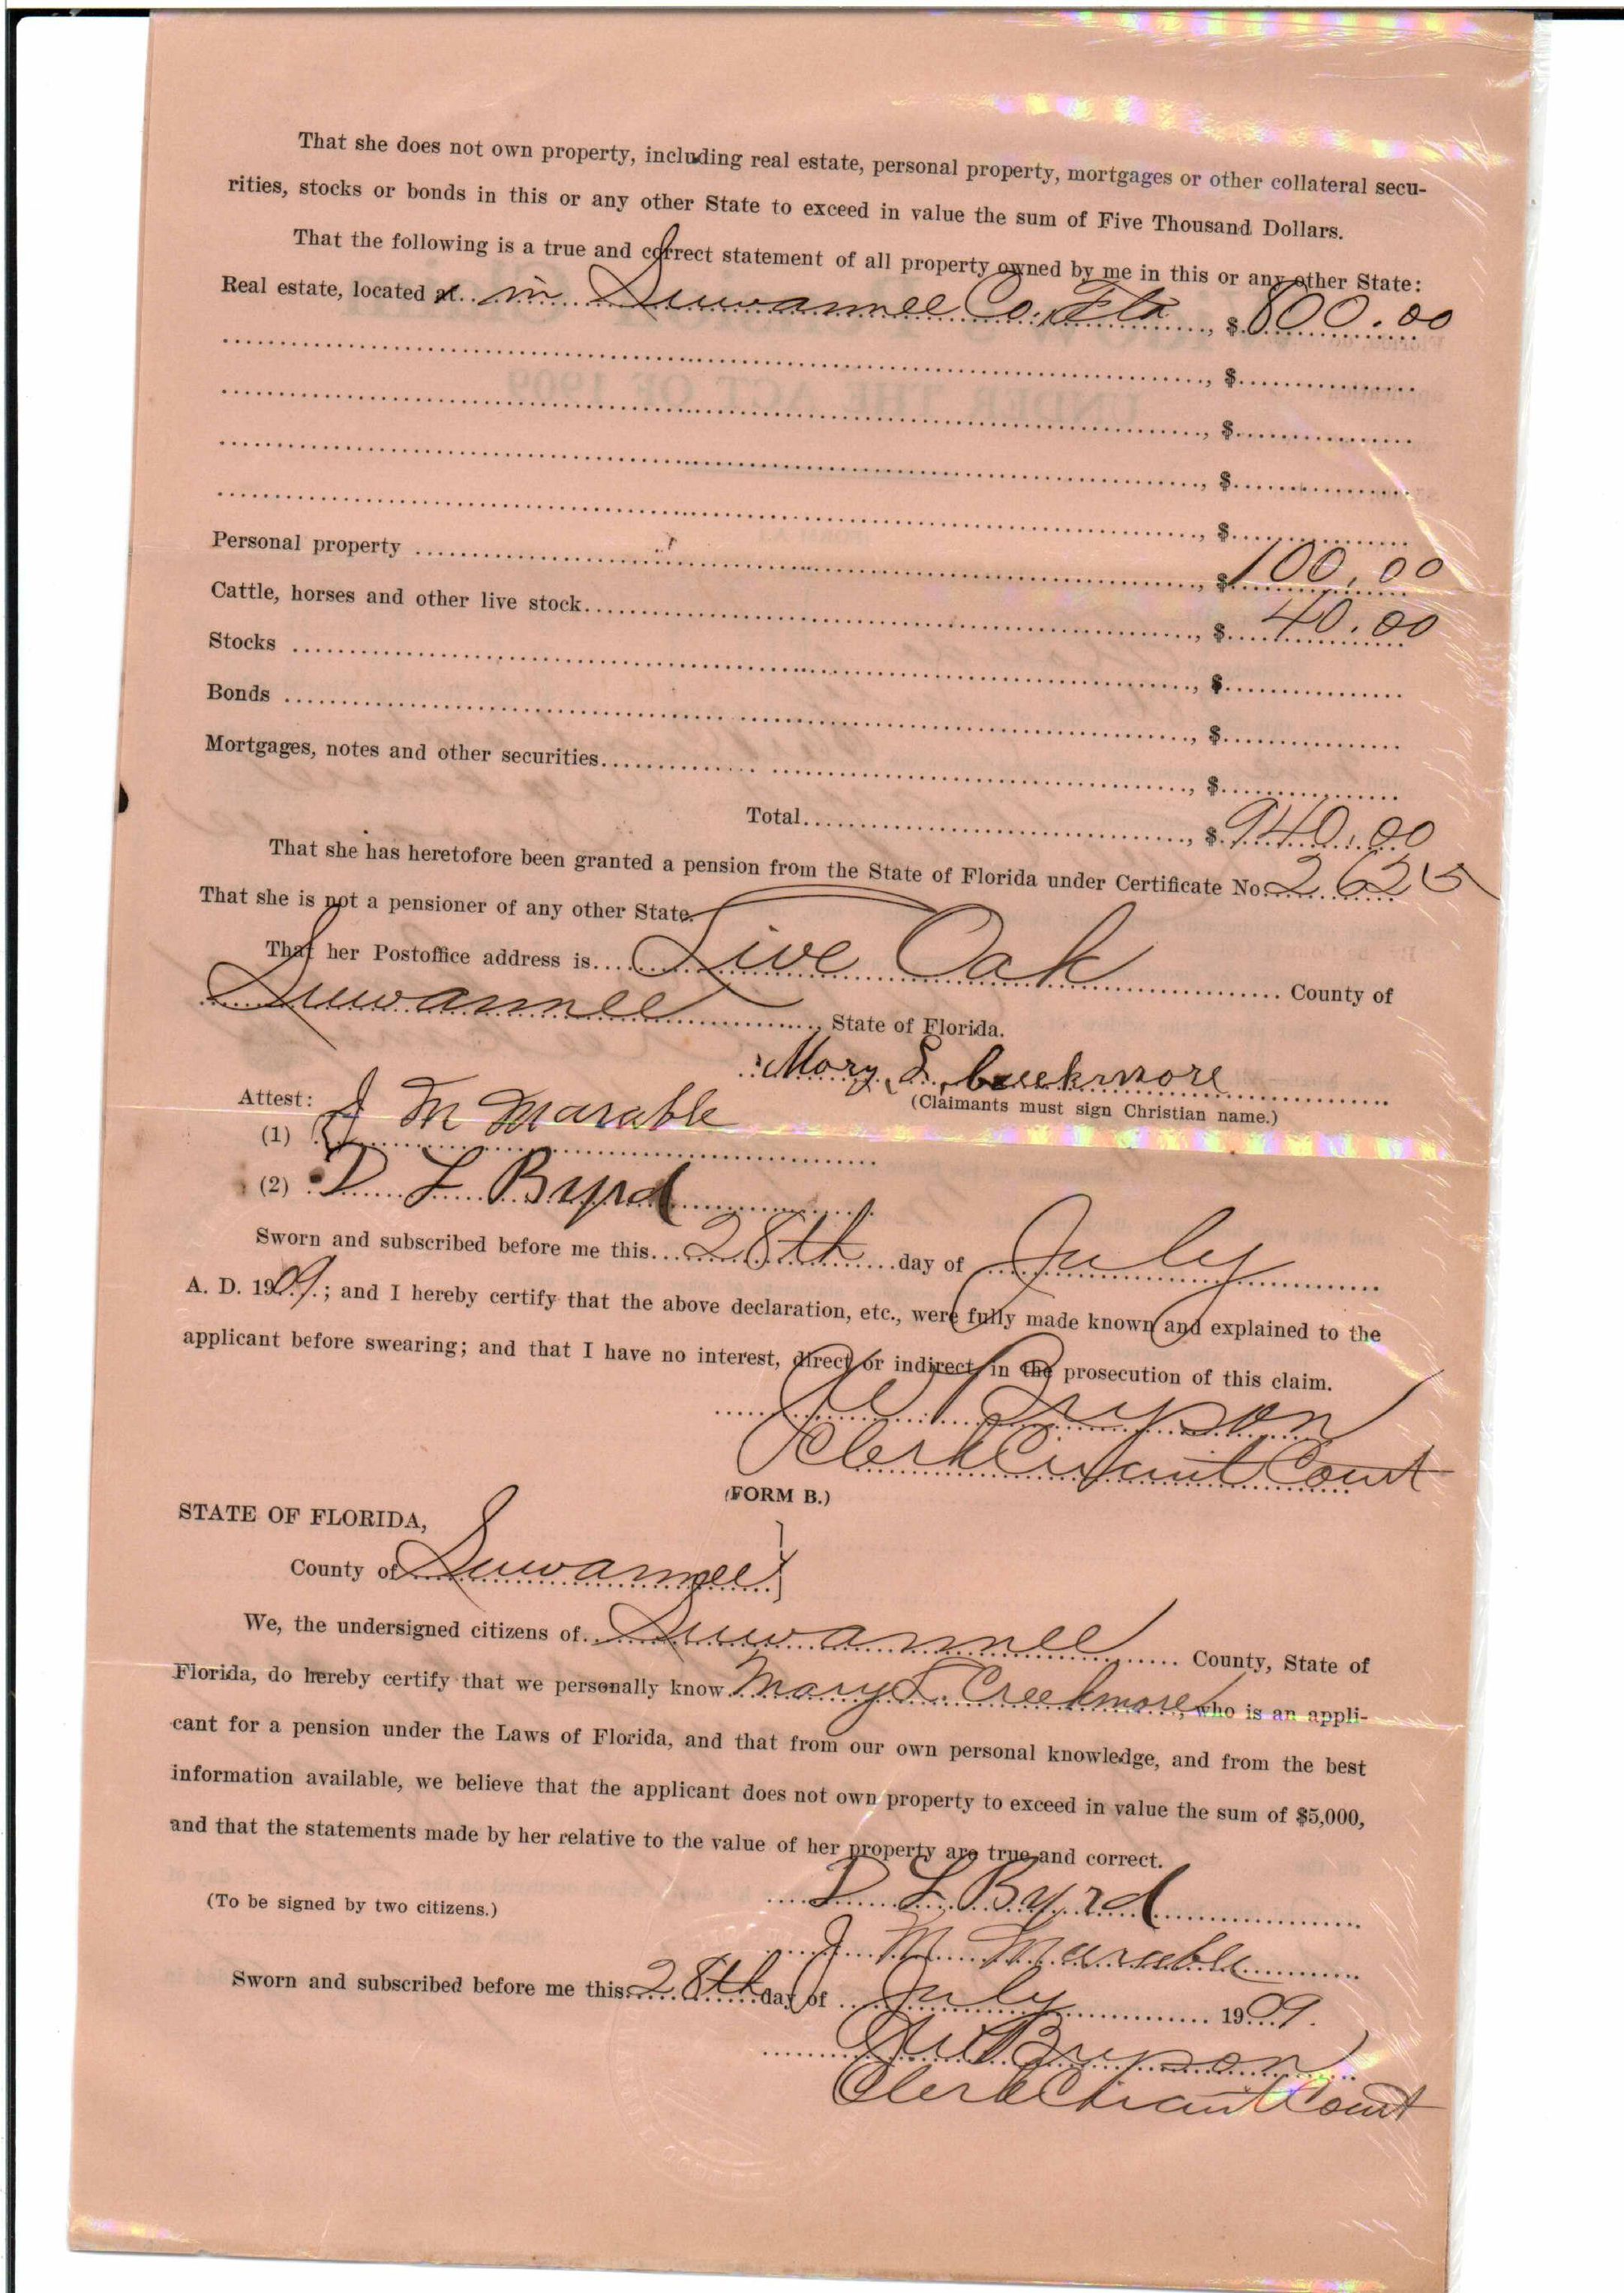 That she does not own property, including real estate, personal property, mortgages or other collateral secu-
rities, stocks or bonds in this or any other State to exceed in value the sum of Five Thousand Dollars.
That the following is a true and correct statement of all property owned by me in this or any other State:
Real estate, located at in Suwannee Co. Fla, $800.00
, $
, $
, $
, $
Personal property, $100.00
Cattle, horses and other live stock, $40.00
Stocks, $
Bonds, $
Mortgages, notes and other securities, $
Total, $940.00
That she has heretofore been granted a pension from the State of Florida under Certificate No. 2625
That she is not a pensioner of any other State.
That her Postoffice address is Live Oak County of
Suwannee, State of Florida.
Mary L. Creekmore
(Claimants must sign Christian name.)
Attest:
(1) J M Marable
(2) D L Byrd
Sworn and subscribed before me this 28th day of July
A. D. 1909.; and I hereby certify that the above declaration, etc., were fully made known and explained to the
applicant before swearing; and that I have no interest, direct or indirect, in the prosecution of this claim.
Bryson
Clerk Circuit Court
(FORM B.)
STATE OF FLORIDA,
County of Suwannee
We, the undersigned citizens of Suwannee County, State of
Florida, do hereby certify that we personally know Mary L. Creekmore, who is an appli-
cant for a pension under the Laws of Florida, and that from our own personal knowledge, and from the best
information available, we believe that the applicant does not own property to exceed in value the sum of $5,000,
and that the statements made by her relative to the value of her property are true and correct.
D L Byrd
(To be signed by two citizens.)
J M Marable
Sworn and subscribed before me this 28th day of July 1909.
Bryson
Clerk Circuit Court